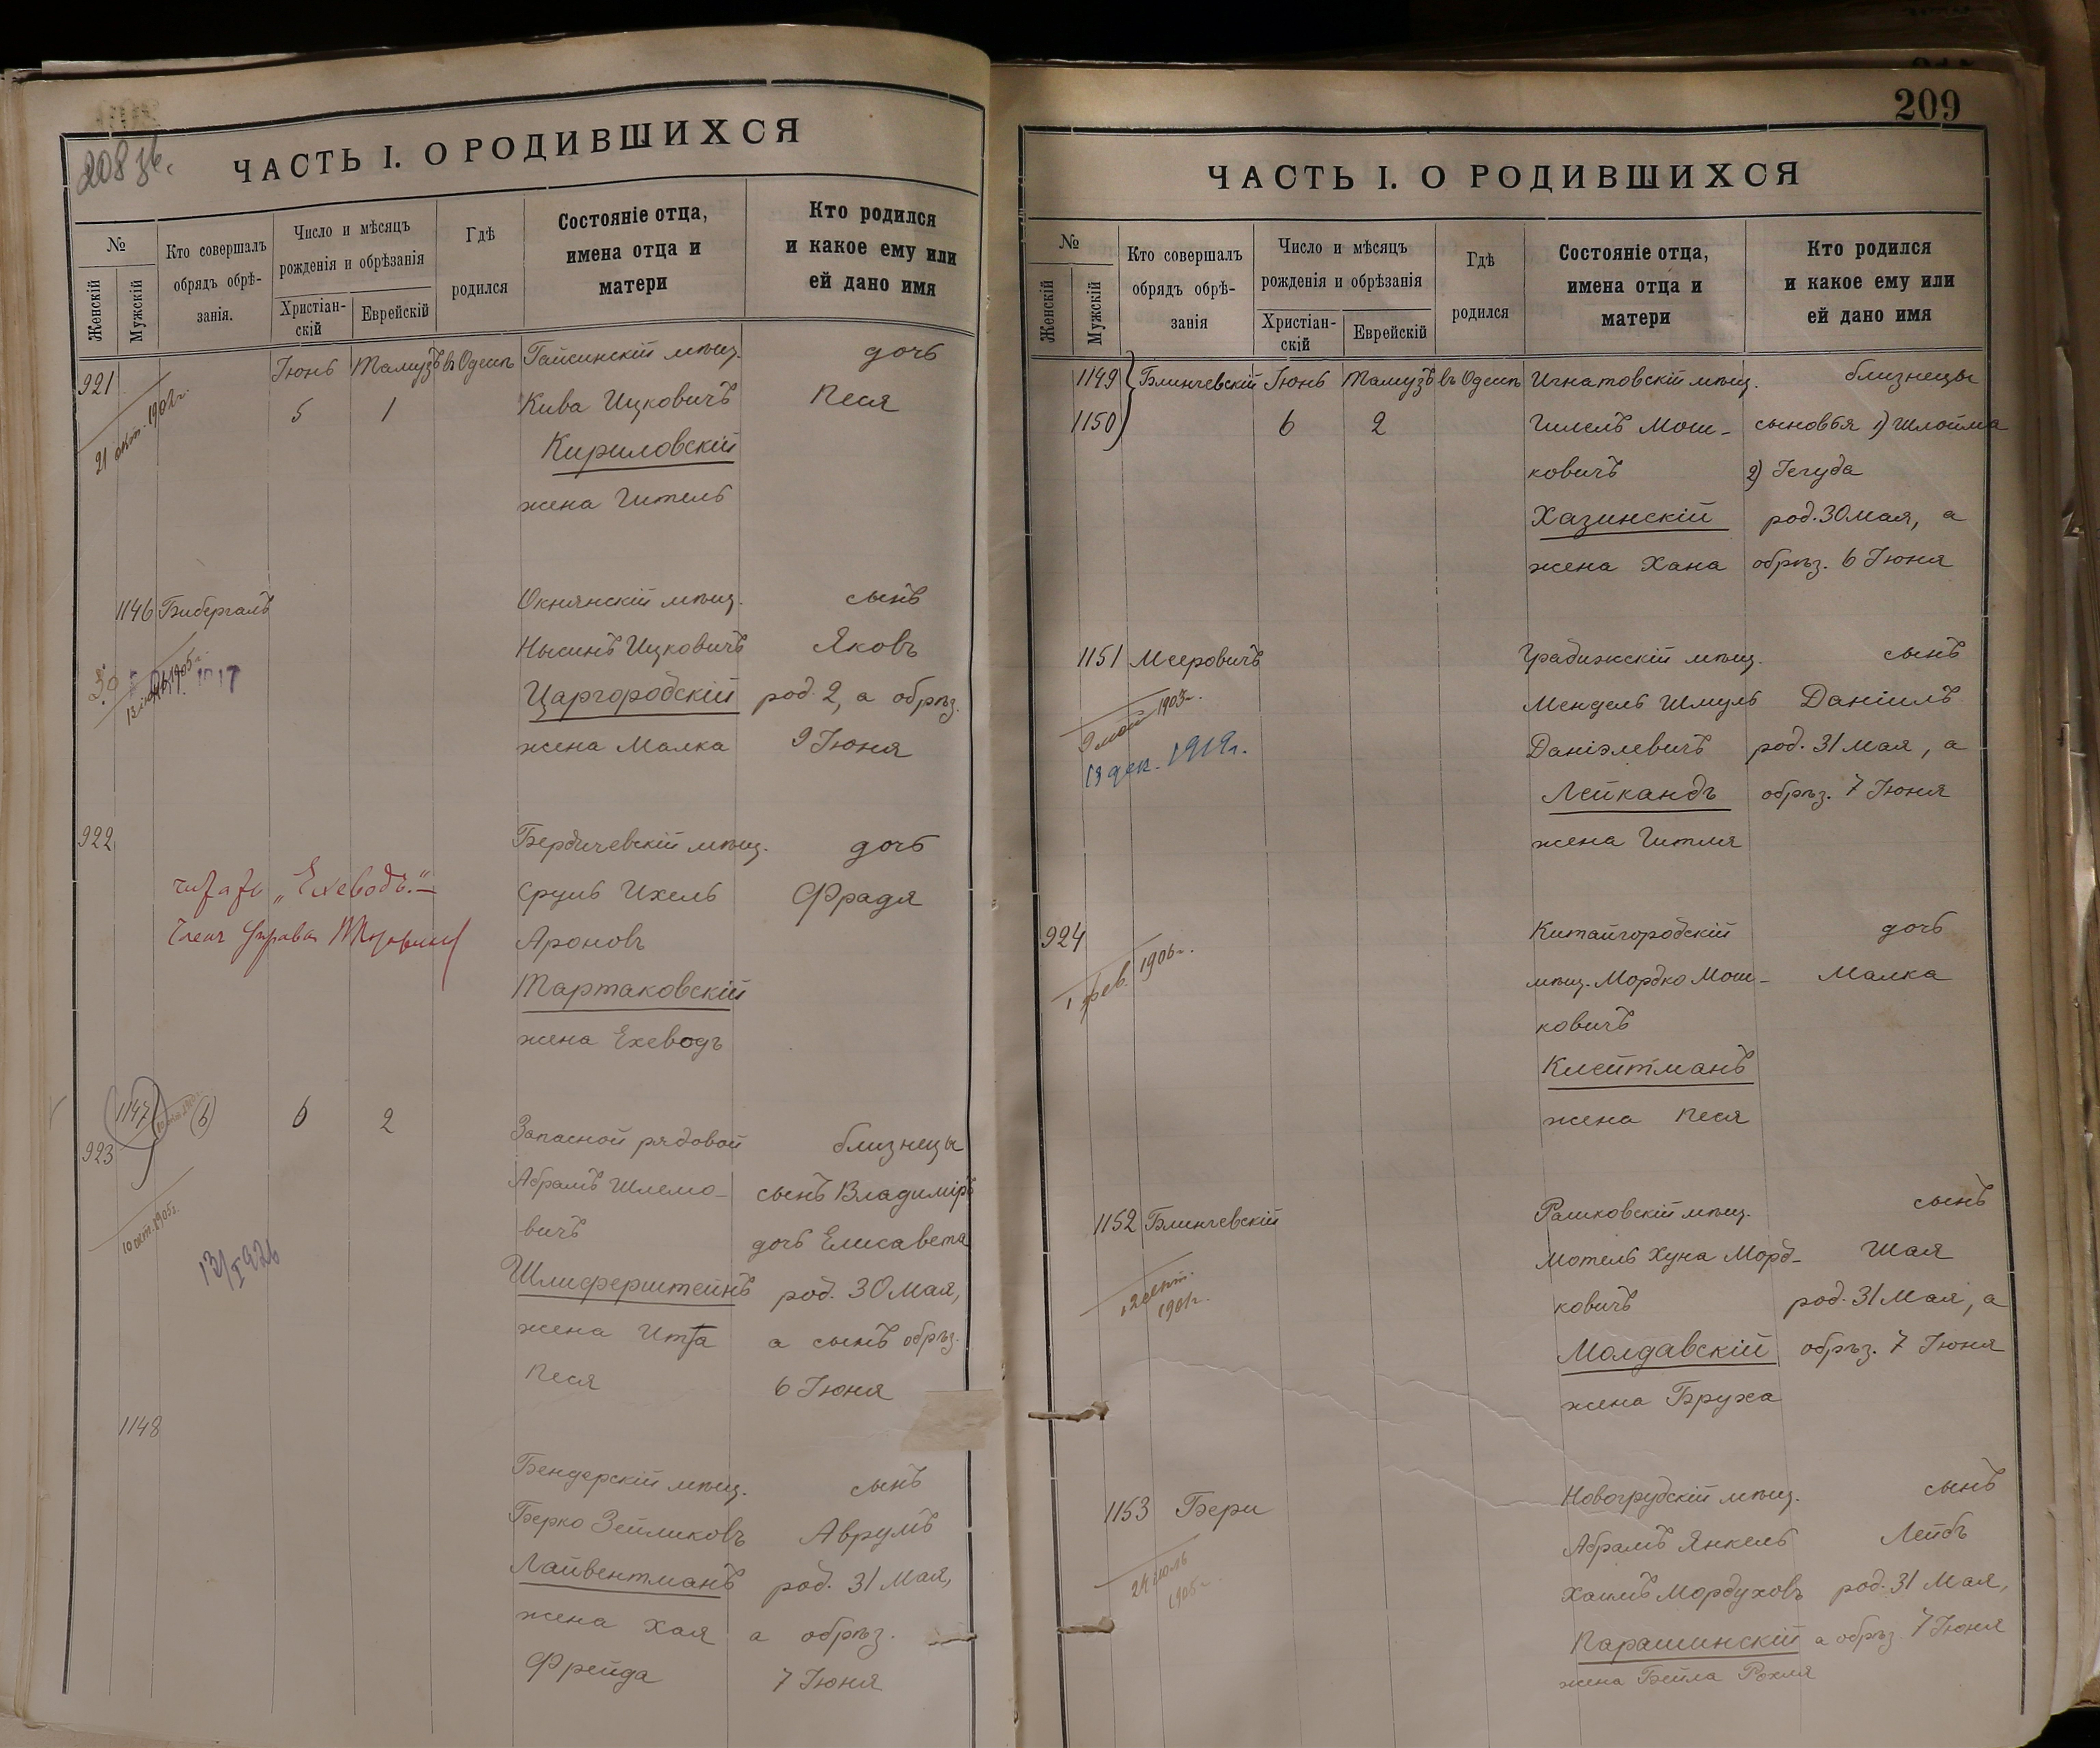 208 зв.
ЧАСТЬ I. О РОДИВШИХСЯ
№
Женскій
Мужской
Кто совершалъ
обрядъ обрѣ-
занія.
Число и мѣсяцъ
рожденія и обрѣзанія
Христіан-
скій
Еврейскій
Гдѣ
родился
Состояніе отца,
имена отца и
матери
Кто родился
и какое ему или
ей дано имя
921 Іюнь Тамузъ въ Одессѣ Гайсинскій мѣщ. дочь
21 окт. 1902г. 5 1 Кива Ицковичъ Песя
Кириловскій
жена Гитель
1146 Бибергалъ Окнянскій мѣщ. сынъ
Нысинъ Ицковичъ Яковъ
Царгородскій род. 2, а обрѣз.
жена Малка 9 Іюня
922 Бердичевскій мѣщ. дочь
читать „Ехеводъ“. Сруль Ихель Фрадя
Членъ Управы Ароновъ
Тартаковскій
жена Ехеводъ
1147 (6) 6 2 Запасной рядовой близнецы
923 Абрамъ Шлемо- сынъ Владиміръ
10 окт. 1905г. вичъ дочь Елисавета
Шлиферштейнъ род. 30 Мая,
жена Итта а сынъ обрѣз.
Песя 6 Іюня
1148
Бендерскій мѣщ. сынъ
Берко Зейликовъ Аврумъ
Лайвентманъ род. 31 Мая,
жена Хая а обрѣз.
Фрейда 7 Іюня
209
ЧАСТЬ I. О РОДИВШИХСЯ
№
Женскій
Мужскій
Кто совершалъ
обрядъ обрѣ-
занія
Число и мѣсяцъ
рожденія и обрѣзанія
Христіан-
скій
Еврейскій
Гдѣ
родился
Состояніе отца,
имена отца и
матери
Кто родился
и какое ему или
ей дано имя
1149 Блинчевскій Іюнь Тамузъ въ Одессѣ Игнатовскій мѣщ. близнецы
1150 6 2 Гилель Мош- сыновья 1) Шлойма
ковичъ 2) Іегуда
Хазинскій род. 30 Мая, а
жена Хана обрѣз. 6 Іюня
1151 Мееровичъ Градижскій мѣщ. сынъ
9 мая 1903г. Мендель Шмуль Даніилъ
13 дек. 1919г. Даніэлевичъ род. 31 Мая, а
Лейкандъ обрѣз. 7 Іюня
жена Гитля
924 Китайгородскій дочь
1 фев. 1906г. мѣщ. Мордко Мош- Малка
ковичъ
Клейтманъ
жена Песя
1152 Блинчевскій Рашковскій мѣщ. сынъ
12 сент. Мотель Хуна Морд- Шая
1901г. ковичъ род. 31 Мая, а
Молдавскій обрѣз. 7 Іюня
жена Бруха
1153 Бери Новогрудскій мѣщ. сынъ
Абрамъ Янкель Лейбъ
1905г. Хаимъ Мордуховъ род. 31 Мая,
Парашинскій а обрѣз. 7 Іюня
жена Бейла Рохля